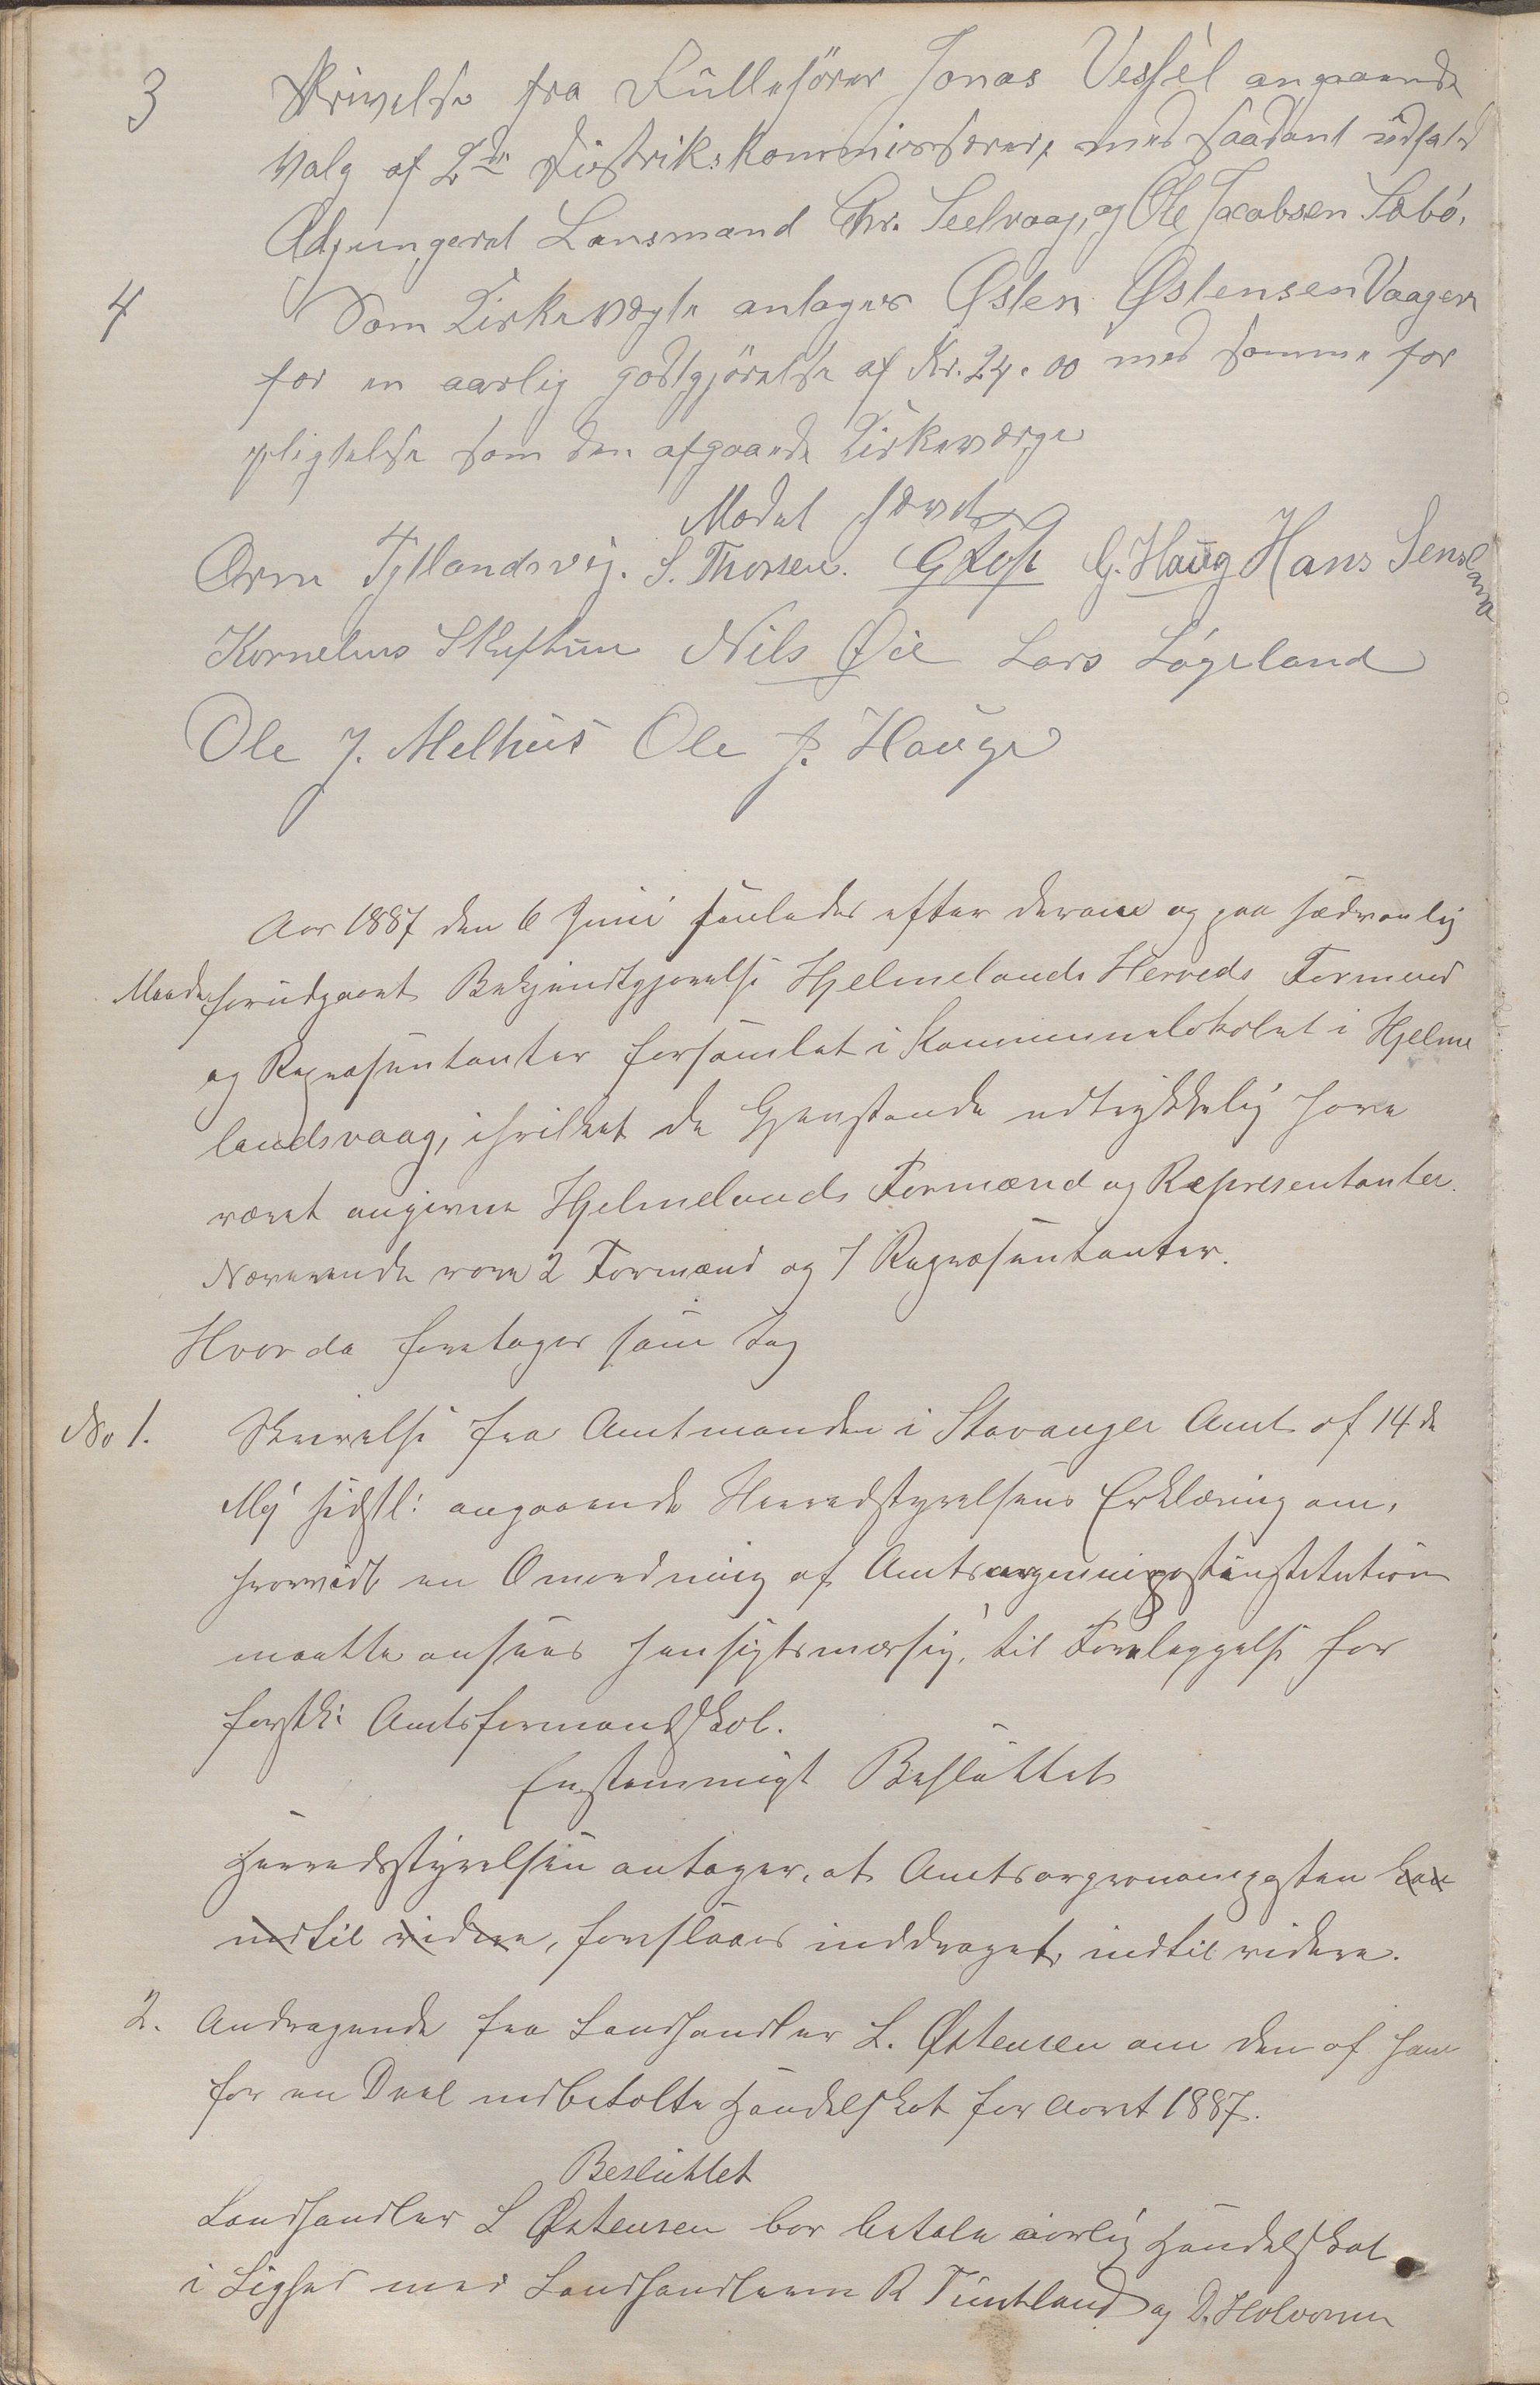 3 Skrivelse fra Rulleförer Jonas Vessel angaaende
Valg af 2de Distrikskommissærer, med saadant udfald
Adjungeret Lansmand Chr. Seelvaag, og Ole Jacobsen Sæbö.
4 Som Kirkeværge antages Østen Østensen Vaagen
for en aarlig godtgjörelse af Kr. 24.00 med samme for
pligtelse som den afgaaende Kirkeværge
Mødet hævet
Orm Tytlandsvig. S. Thorsen. G. Haug Hans
Kornelius Skiftun Nils Øie Lars Lögeland
Ole J. Melhus Ole J. Hauge
Aar 1887 den 6 Juni holdes efter derom og paa sædvanlig
Maade forudgaaet Bekjendtgjørelse Hjelmelands Herreds Formænd
og Repræsentanter forsamlet i Kommunelokalet i Hjelme
landsvaag, i hvilket de Gjenstande udtrykkelig have
været angivne Hjelmelands Formænd og Repræsentanter.
Nærværende vare 2 Formænd og 7 Repræsentanter.
Hvor da foretages som Sag
No 1. Skrivelse fra Amtmanden i Stavanger Amt af 14de
Mij sidstl: angaaende Herredstyrelsens Erklæring om,
hvorvidt en Omordning af Amts
maatte ansees hensigtsmæssig, til Foreleggelse for
førstk: Amtsformandskab.
Enstemmigt Besluttet
Herredsstyrelsen antager, at Amtsagronomposten kan
indtil videre, foreslaaes inddraget, indtil videre.
2. Andragende fra Landhandler L. Østensen om den af ham
for en Deel indbetalte Handelskat for Aaret 1887.
Besluttet
Landhandler L Østensen bør betale aarlig Handelskat
i Lighed med Landhandlerne R Tuntland og D. Halvorsen